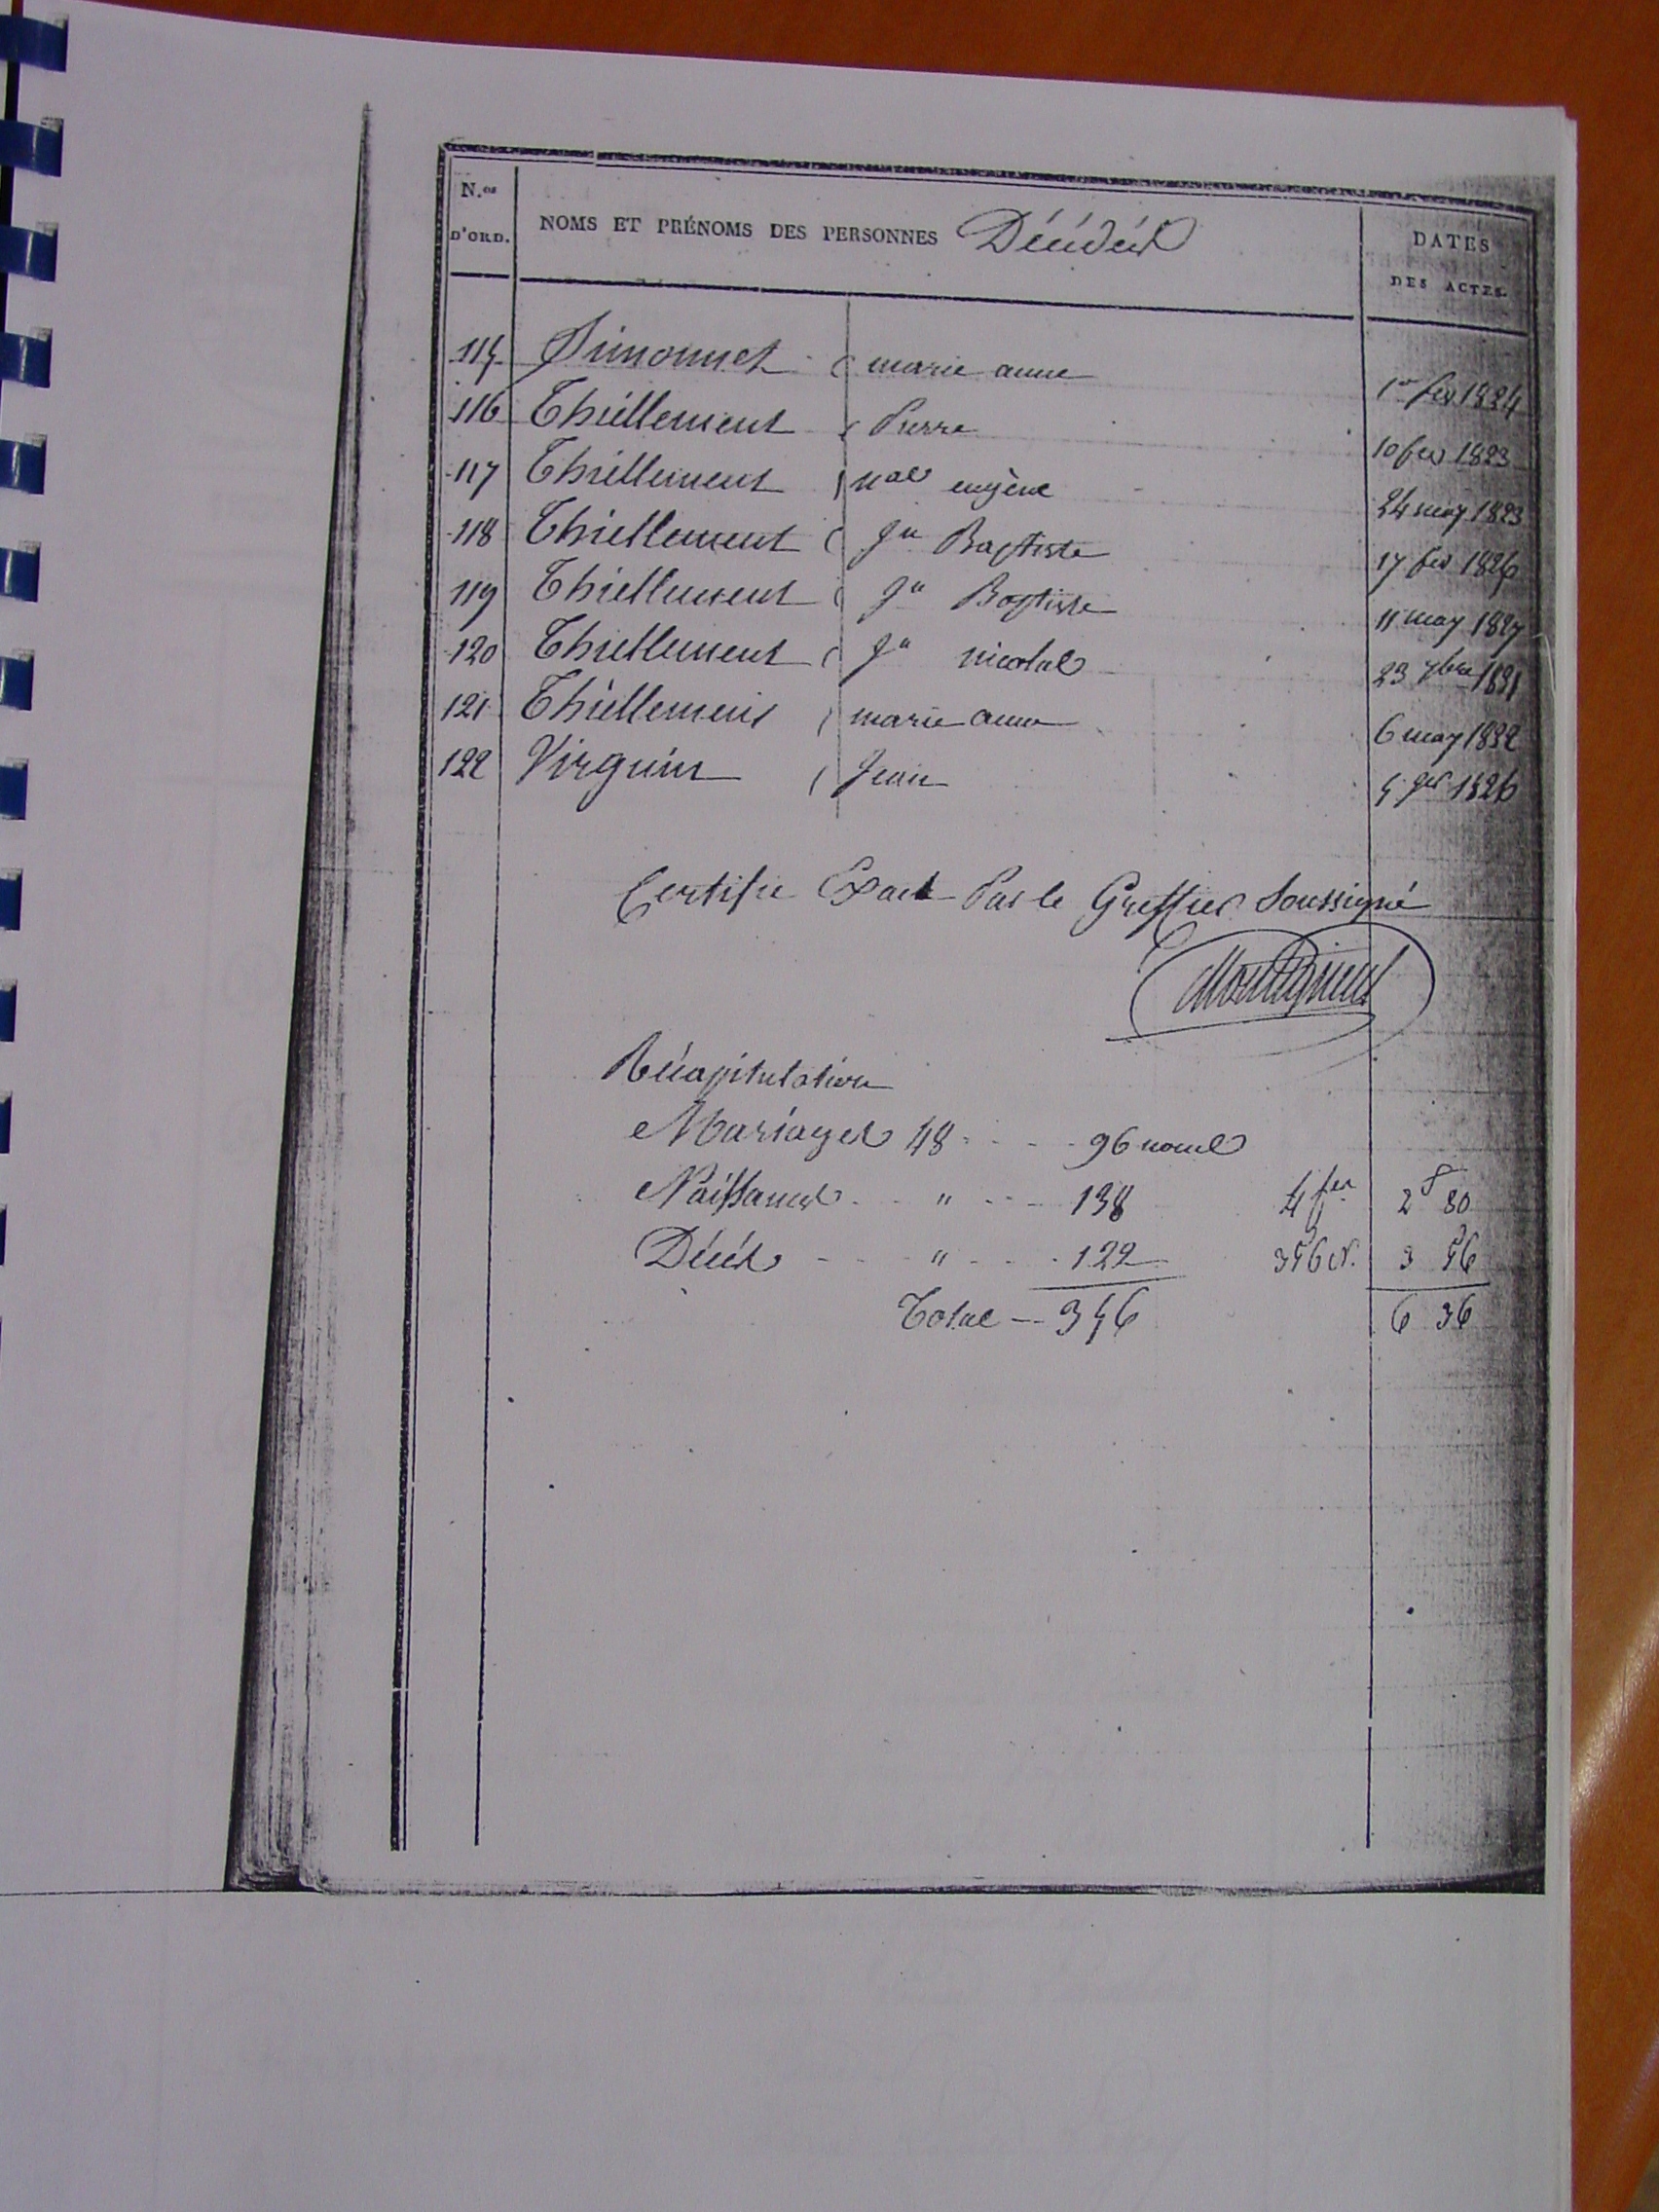 N.os D'ORD.
NOMS ET PRÉNOMS DES PERSONNES Décédées
DATES DES ACTES.
115 Simonnet marie anne 1er fev 1824
116 Thiellement Pierre 10 fev 1823
117 Thiellement nas eugène 24 may 1823
118 Thiellement Jn Baptiste 17 fev 1826
119 Thiellement Jn Baptiste 11 may 1827
120 Thiellement Jn nicolas 23 7bre 1831
121 Thiellement marie anne 6 may 1832
122 Virguin Jean 5 1826
Certifié Exact Par le Greffier Soussigné
Récapitulation
Mariages 48 - - - 96 noms
Naissances - - " - - - 138 4 fes 2 f 80
Décès - - - " - - - 122 356 N. 3 56
Total -- 356 6 36